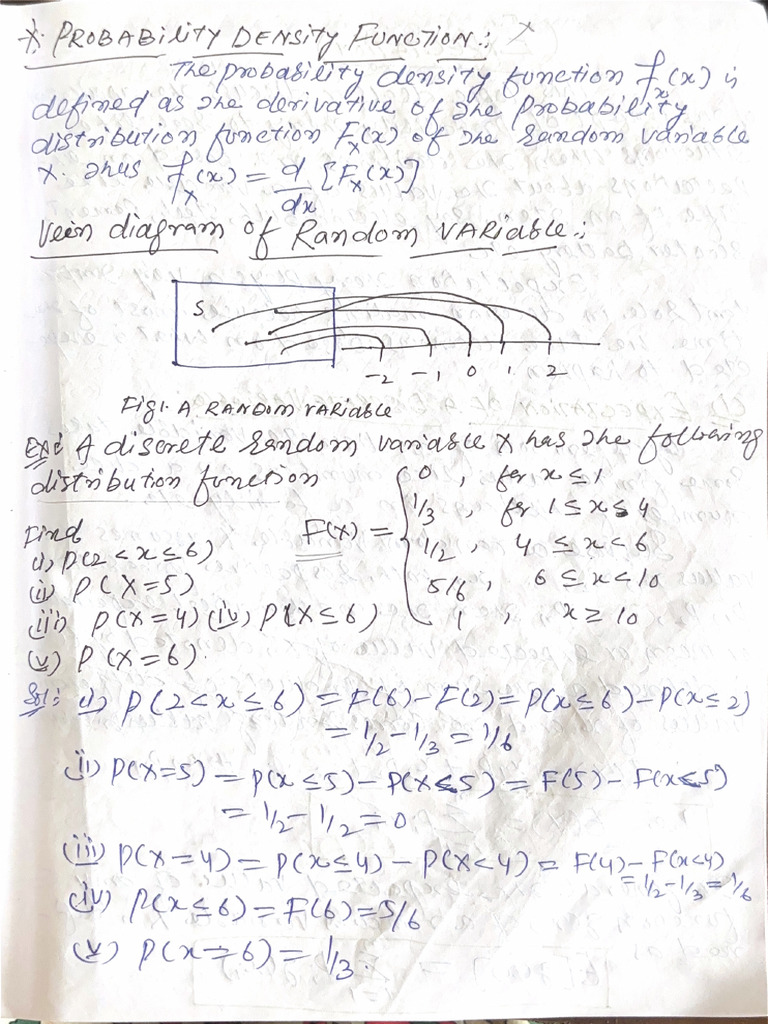 * PROBABILITY DENSITY FUNCTION :
The probability density function f_X(x) is
defined as the derivative of the probability
distribution function F_X(x) of the random variable
X. Thus f_X(x) = d/dx [F_X(x)]
Vein diagram of Random VARiable :
S
-2 -1 0 1 2
Fig1. A RANDOM VARIABLE
Ex: A discrete random variable X has the following
distribution function
F(x) = { 0 , for x ≤ 1
1/3 , for 1 ≤ x ≤ 4
1/2 , 4 ≤ x < 6
5/6 , 6 ≤ x < 10
1 , x ≥ 10
Find
(i) P(2 < x ≤ 6)
(ii) P(X = 5)
(iii) P(X = 4) (iv) P(X ≤ 6)
(v) P(X = 6).
Sol: (i) P(2 < x ≤ 6) = F(6) - F(2) = P(x ≤ 6) - P(x ≤ 2)
= 1/2 - 1/3 = 1/6
(ii) P(X = 5) = P(x ≤ 5) - P(X < 5) = F(5) - F(x < 5)
= 1/2 - 1/2 = 0
(iii) P(X = 4) = P(x ≤ 4) - P(X < 4) = F(4) - F(x < 4)
= 1/2 - 1/3 = 1/6
(iv) P(x ≤ 6) = F(6) = 5/6
(v) P(x = 6) = 1/3.